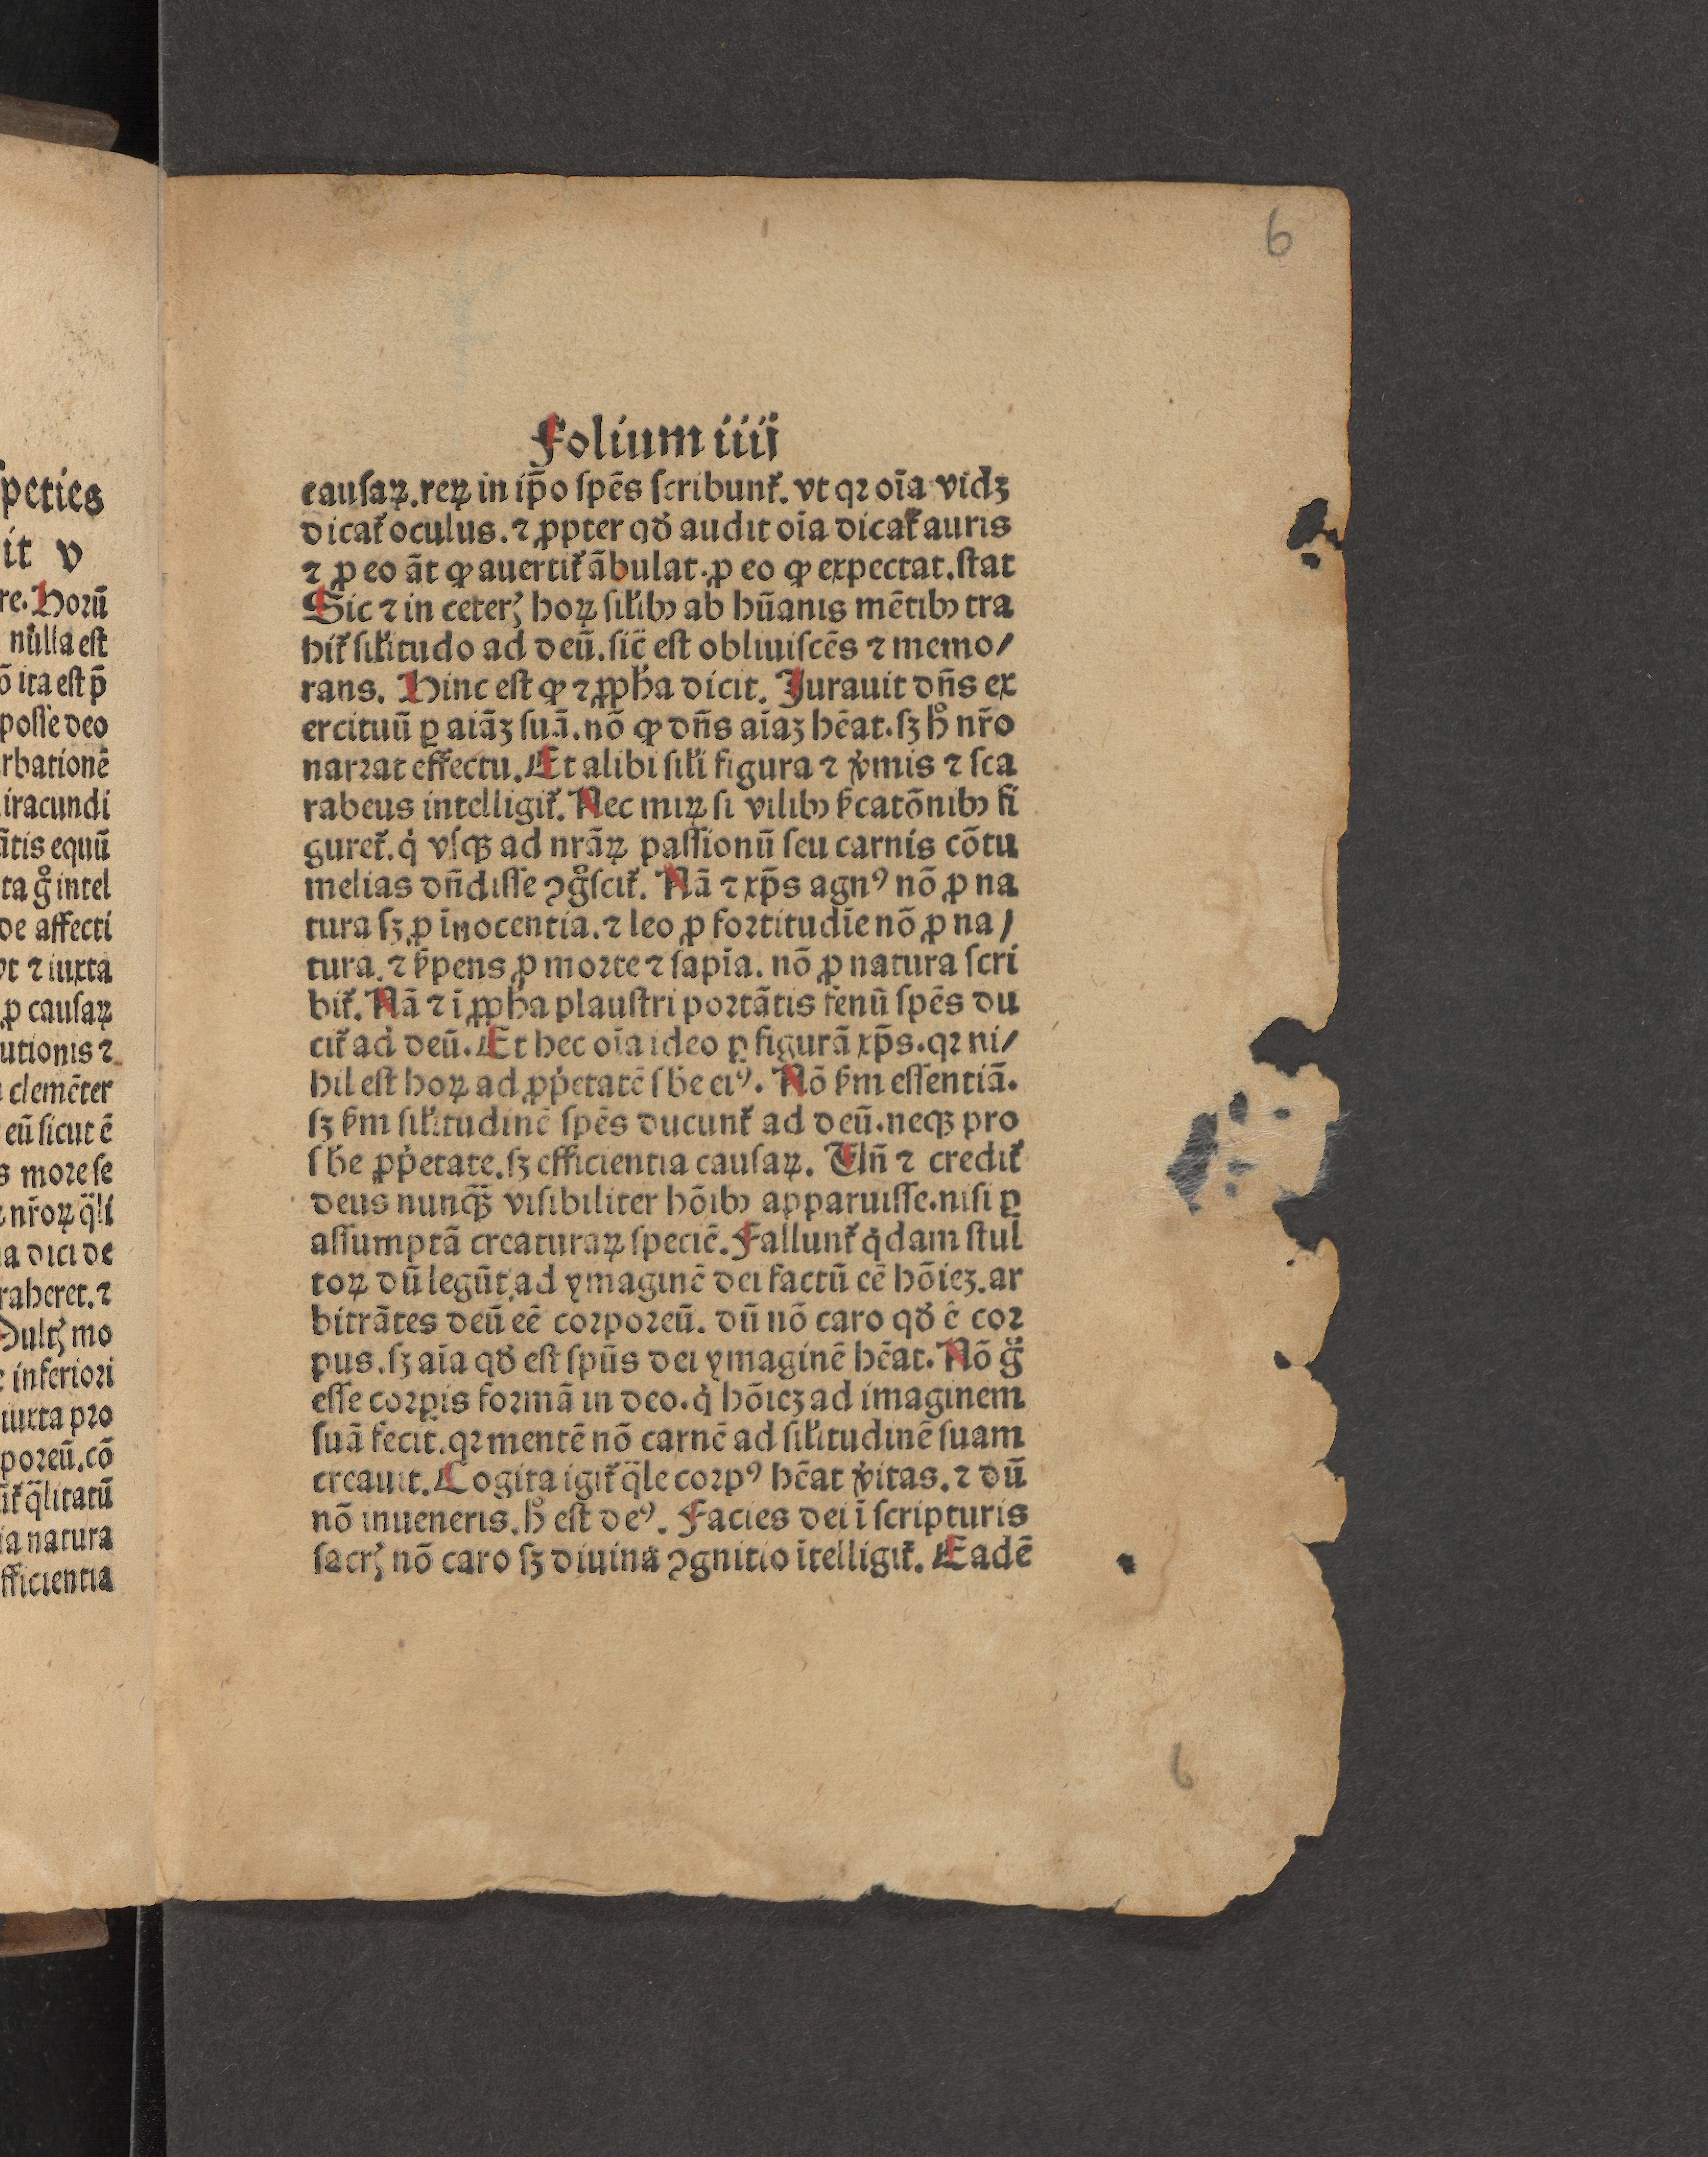 6
Folium iiij
cauſaꝝ. reꝝ in ip̄o ſpēs ſcribunt᷑. vt qꝛ oīa vidꝫ
dicat᷑ oculus. ⁊ ꝓpter qđ audit oīa dicat᷑ auris
⁊ ꝓ eo āt ꝙ auertit᷑ ābulat. ꝓ eo ꝙ expectat. ſtat
Sic ⁊ in ceterꝭ hoꝝ ſiłibꝰ ab hūanis mētibꝰ tra
hit᷑ ſiłitudo ad deū. ſic̄ eſt obliuiſcēs ⁊ memo/
rans. Hinc eſt ꝙ ⁊ ꝓph̄a dicit. Jurauit dn̄s ex
ercituū ꝑ aīaꝫ ſuā. nō ꝙ dn̄s aīaꝫ hēat. ſꝫ hͦ nr̄o
narꝛat effectu. Et alibi ſiłi figura ⁊ v̓mis ⁊ ſca
rabeus intelligit᷑. Nec miꝝ ſi vilibꝰ ſ̓catōnibꝰ fi
guret᷑. q̇ vſqꝫ ad nrāꝝ paſſionū ſeu carnis cōtu
melias dn̄diſſe ꝯgͦſcit᷑. Nā ⁊ xp̄s agnꝰ nō ꝓ na
tura ſꝫ ꝓ īnocentia. ⁊ leo ꝓ foꝛtitudīe nō ꝓ na/
tura. ⁊ ſ̓pens ꝓ moꝛte ⁊ ſapīa. nō ꝓ natura ſcri
bit᷑. Nā ⁊ ī ꝓph̄a plauſtri poꝛtātis fenū ſpēs du
cit᷑ ad deū. Et hec oīa ideo ꝑ figurā xp̄s. qꝛ ni/
hil eſt hoꝝ ad ꝓp̓etatē ſb̄e eiꝰ. Nō ſ̓m eſſentiā.
ſꝫ ſ̓m ſiłitudinē ſpēs ducunt᷑ ad deū. neqꝫ pro
ſb̄e ꝓp̓etate. ſꝫ efficientia cauſaꝝ. Un̄ ⁊ credit᷑
deus nunqᷓꝫ viſibiliter hōibꝰ apparuiſſe. niſi ꝑ
aſſumptā creaturaꝝ ſpeciē. Fallunt᷑ q̇dam ſtul
toꝝ dū legūt, ad ymaginē dei factū eē hōiēꝫ. ar
bitrātes deū eē coꝛpoꝛeū. dū nō caro qđ ē coꝛ
pus. ſꝫ aīa qđ eſt ſpūs dei ymaginē hēat. Nō gͦ
eſſe coꝛꝑis foꝛmā in deo. q̇ hōiēꝫ ad imaginem
ſuā fecit. qꝛ mentē nō carnē ad ſiłitudinē ſuam
creauit. Cogita igit᷑ qᷓle coꝛpꝰ hēat v̓itas. ⁊ dū
nō inueneris. hͦ eſt deꝰ. Facies dei ī ſcripturis
ſacrꝭ nō caro ſꝫ diuina ꝯgnitio ītelligit᷑. Eadē
6
peties
it v
re. Hoꝛū
nulla eſt
ō ita eſt p̄
poſſe deo
rbationē
iracundi
ātis equū
ta gͦ intel
de affecti
vt ⁊ iuxta
ꝓ cauſaꝝ
utionis ⁊
clemēter
eū ſicut ē
s moꝛe ſe
nr̄oꝝ qᷓli
a dici de
raheret. ⁊
Multꝭ mo
e inferioꝛi
iuxta pꝛo
poꝛeū. cō
it᷑ qᷓlitatū
ia natura
fficientia